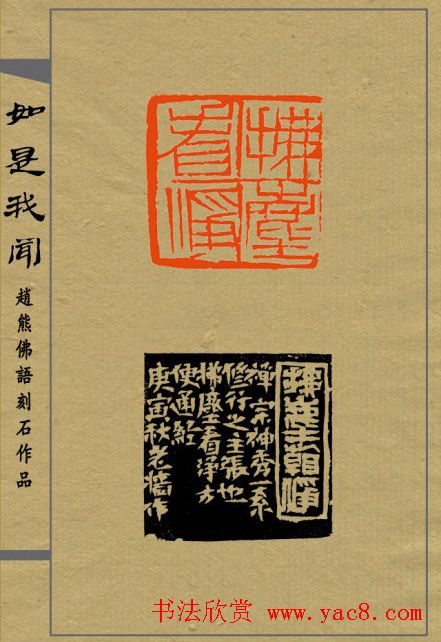 如是我聞
趙熊佛語刻石作品
拂塵看淨
拂塵看淨
禪宗神秀一系
修行之主張也
拂塵看淨方
便通經
庚寅秋老墻作
书法欣赏 www.yac8.com